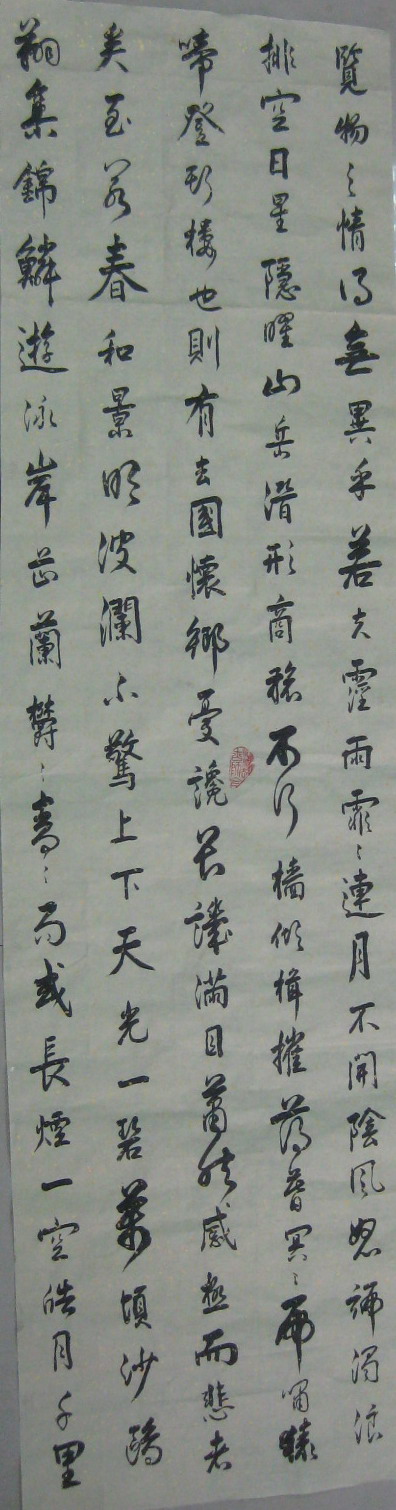 覽物之情得無異乎若夫霪雨霏々連月不開陰風怒號濁浪
排空日星隱曜山岳潛形商旅不行檣傾楫摧薄暮冥々虎嘯猿
啼登斯樓也則有去國懷鄉憂讒畏譏滿目蕭然感極而悲者
矣至若春和景明波瀾不驚上下天光一碧萬頃沙鷗
翔集錦鱗遊泳岸芷蘭鬱々青々而或長煙一空皓月千里